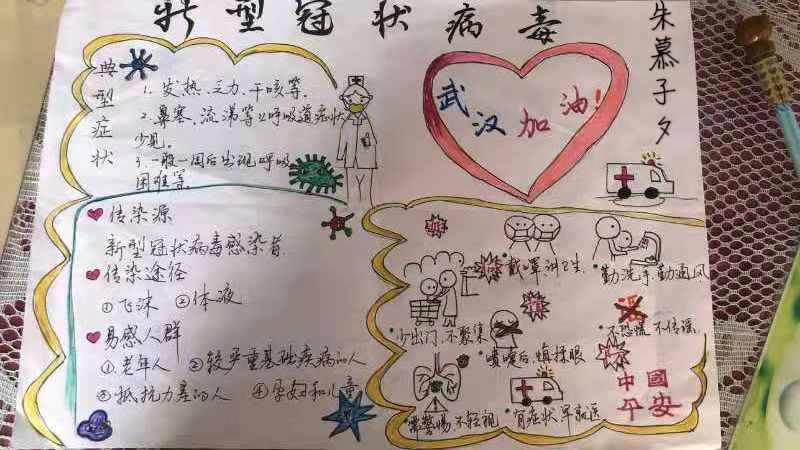 新型冠状病毒
朱慕子夕
典型症状
1、发热、乏力、干咳等.
2.鼻塞、流涕等上呼吸道症状
少见.
3、一般一周后出现呼吸
困难等.
武汉加油!
传染源
新型冠状病毒感染者
传染途径
①飞沫 ②体液
易感人群
①老年人 ②较严重基础疾病的人
③抵抗力差的人 ④孕妇和儿童
戴罩讲卫生
勤洗手.勤通风
少出门.不聚集
不恐慌 不传谣.
咳嗽后.慎揉眼
中國
平安
常警惕.不轻视
有症状早就医